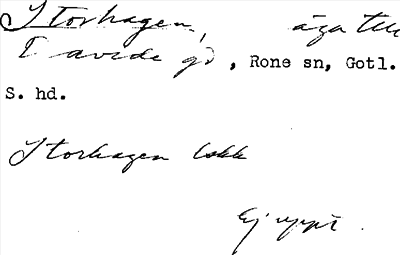 Storhagen, äga till
Tavide gd, Rone sn, Gotl.
S. hd.
Storhagen lskk
Ej uppt.